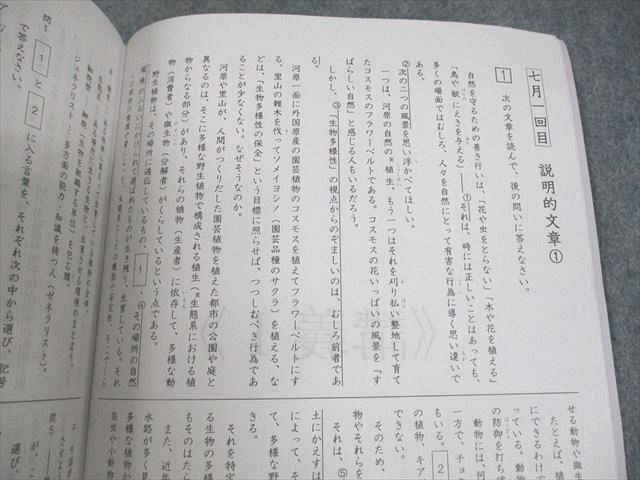 七月一回目　説明的文章①
1　次の文章を読んで、後の問いに答えなさい。
自然を守るための善き行いは、「花や虫をとらない」「木や花を植える」
「鳥や獣にえさを与える」――①それは、時には正しいことはあっても、
多くの場面ではむしろ、人々を自然にとって有害な行為に導く思い違いで
ある。
②次の二つの風景を思い浮かべてほしい。
一つは、河原の自然の※植生、もう一つはそれを刈り払い整地して育て
たコスモスのフラワーベルトである。コスモスの花いっぱいの風景を「す
ばらしい自然」と感じる人もいるだろう。
しかし、③「生物多様性」の視点からのぞましいのは、むしろ前者であ
る。
河原一面に外国原産の園芸植物のコスモスを植えてフラワーベルトにす
る、里山の雑木を伐ってソメイヨシノ（園芸品種のサクラ）を植える、な
どは、「生物多様性の保全」という目標に照らせば、つつしむべき行為であ
ることが少なくない。なぜそうなのか。
河原や里山が、人間がつくりだした園芸植物を植えた都市の公園や庭と
異なるのは、そこに多様な野生植物で構成される植生（※生態系において植
物からなる部分）があり、それらの植物（生産者）に依存して、多様な動
物（消費者）や微生物（分解者）がくらしているという点である。
野生植物は、その場所に適応しているもの、1、④その場所の自然
環境のふるいにかけられて選ばれたものが生き残り、生育している。それ
問1　1と2に入る言葉を、それぞれ次の中から選び、記号
で答えなさい。
せる動物や微生
たとえば、植
にできるわけで
っている。動物
の防御を打ち破
動物には、何
一方で、チョウ
もいる。2
の植物、キア
できない。
そのため、
物やそれらを
それは、⑤
土にかえすは
によって、そ
て、多様な野
きる。
それを特定
る生物の多様
もそのはたら
また、近年
水路が多く見
多様な植物か
昆虫や小動物
問5